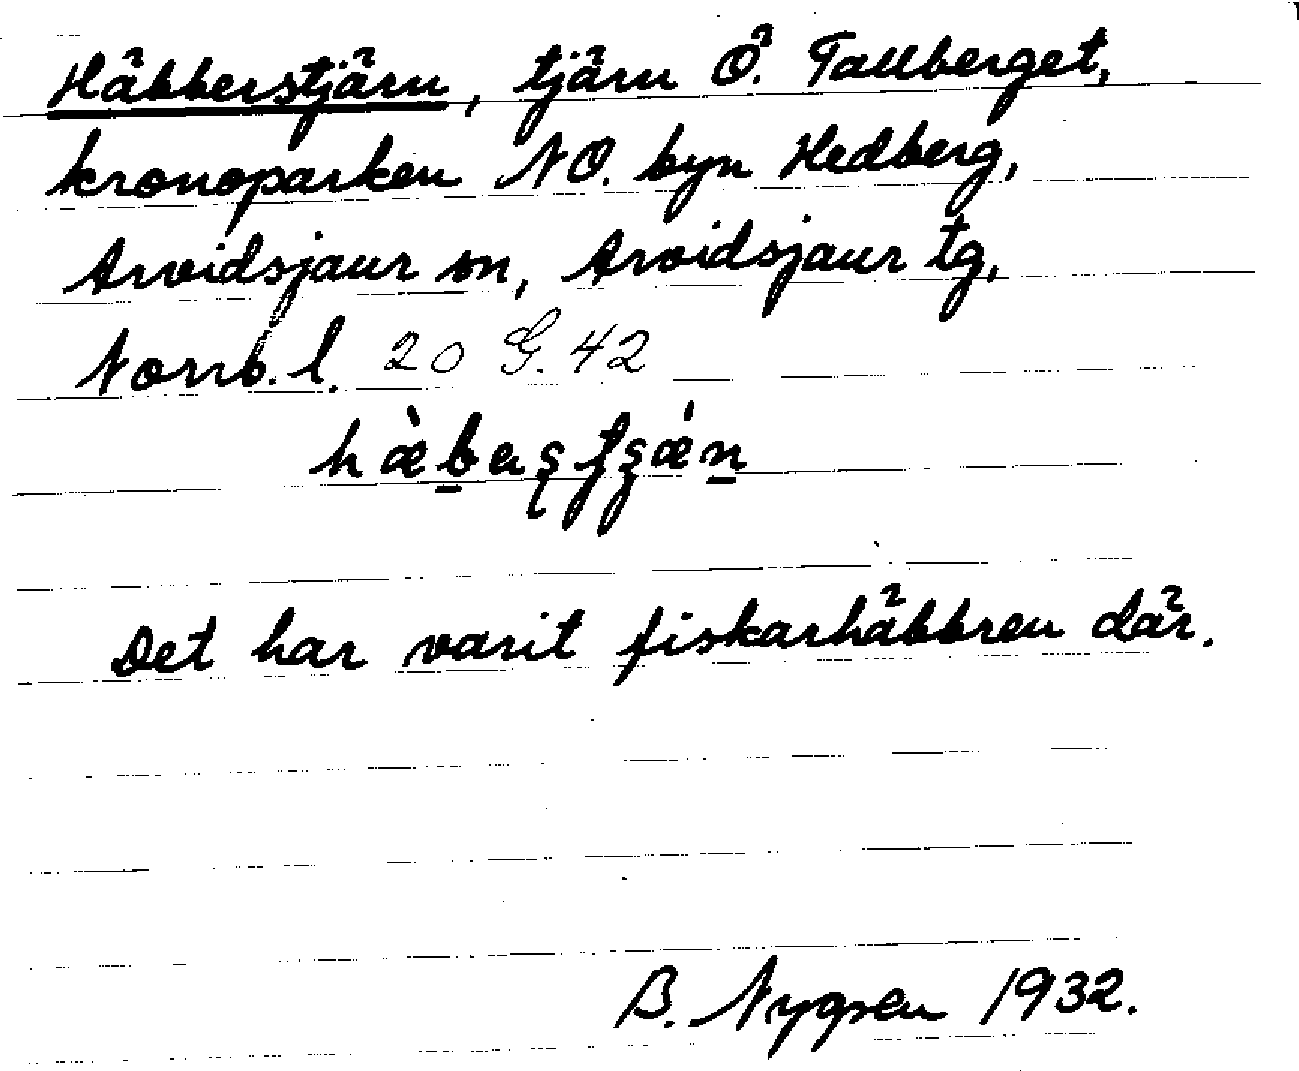 Häbberstjärn, tjärn Ö. Tallberget,
kronoparken NO. byn Hedberg,
Arvidsjaur sn, Arvidsjaur tg,
Norrb. l. 20 G. 42
Det har varit fiskarhäbbren där.
B. Nygren 1932.